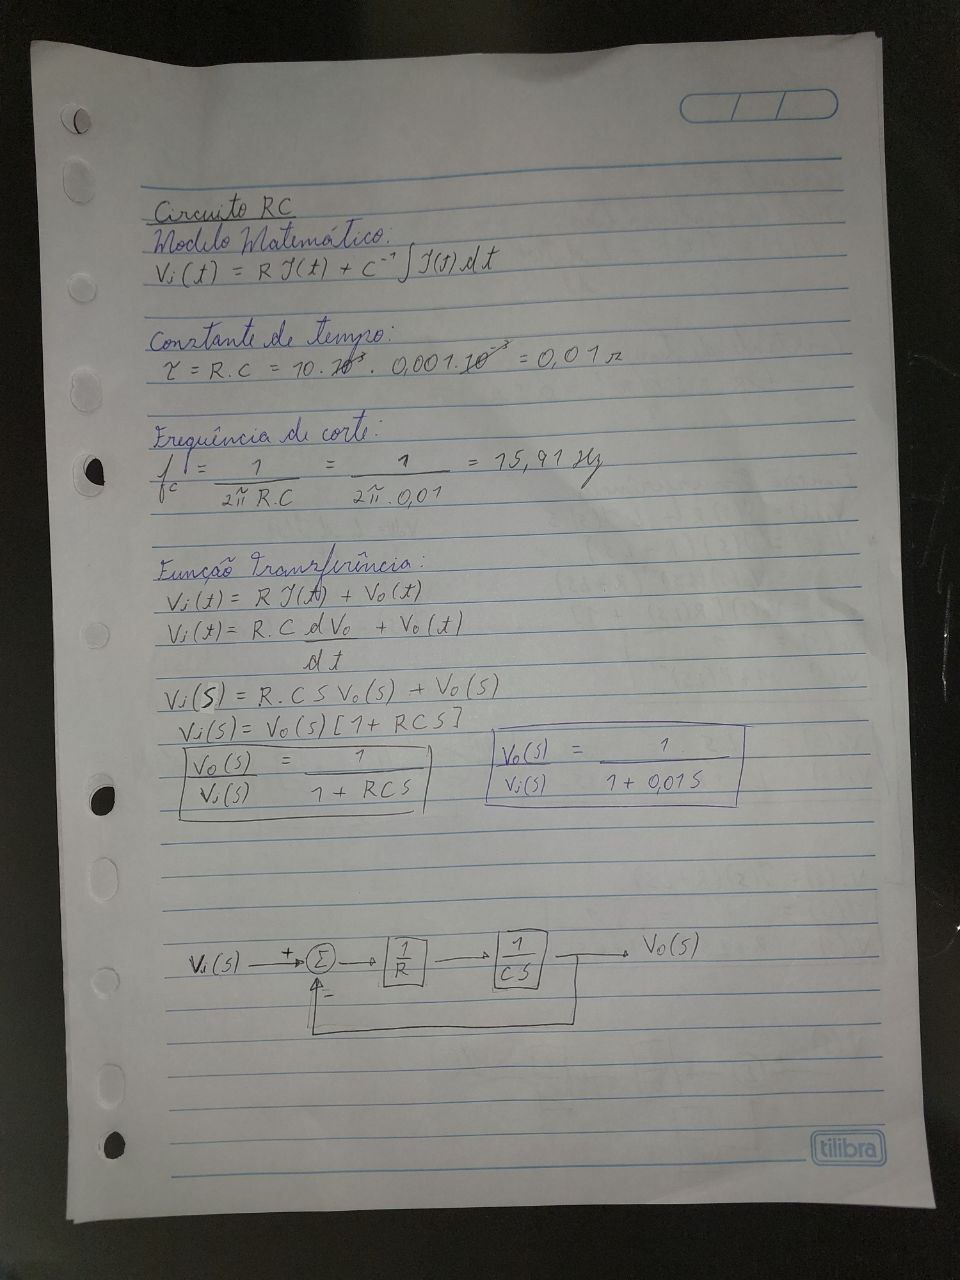 Circuito RC
Modelo Matemático:
Vi(t) = R I(t) + C⁻¹ ∫ I(t) dt
Constante de tempo:
τ = R.C = 10.10³. 0,001.10⁻³ = 0,01 s
Frequência de corte:
fc = 1/(2π R.C) = 1/(2π.0,01) = 15,91 Hz
Função Transferência:
Vi(t) = R I(t) + Vo(t)
Vi(t) = R.C dVo/dt + Vo(t)
Vi(s) = R.C S Vo(s) + Vo(s)
Vi(s) = Vo(s) [1 + RCS]
Vo(s)/Vi(s) = 1/(1 + RCS)
Vo(s)/Vi(s) = 1/(1 + 0,01S)
Vi(s) + Σ 1/R 1/CS Vo(s)
-
tilibra